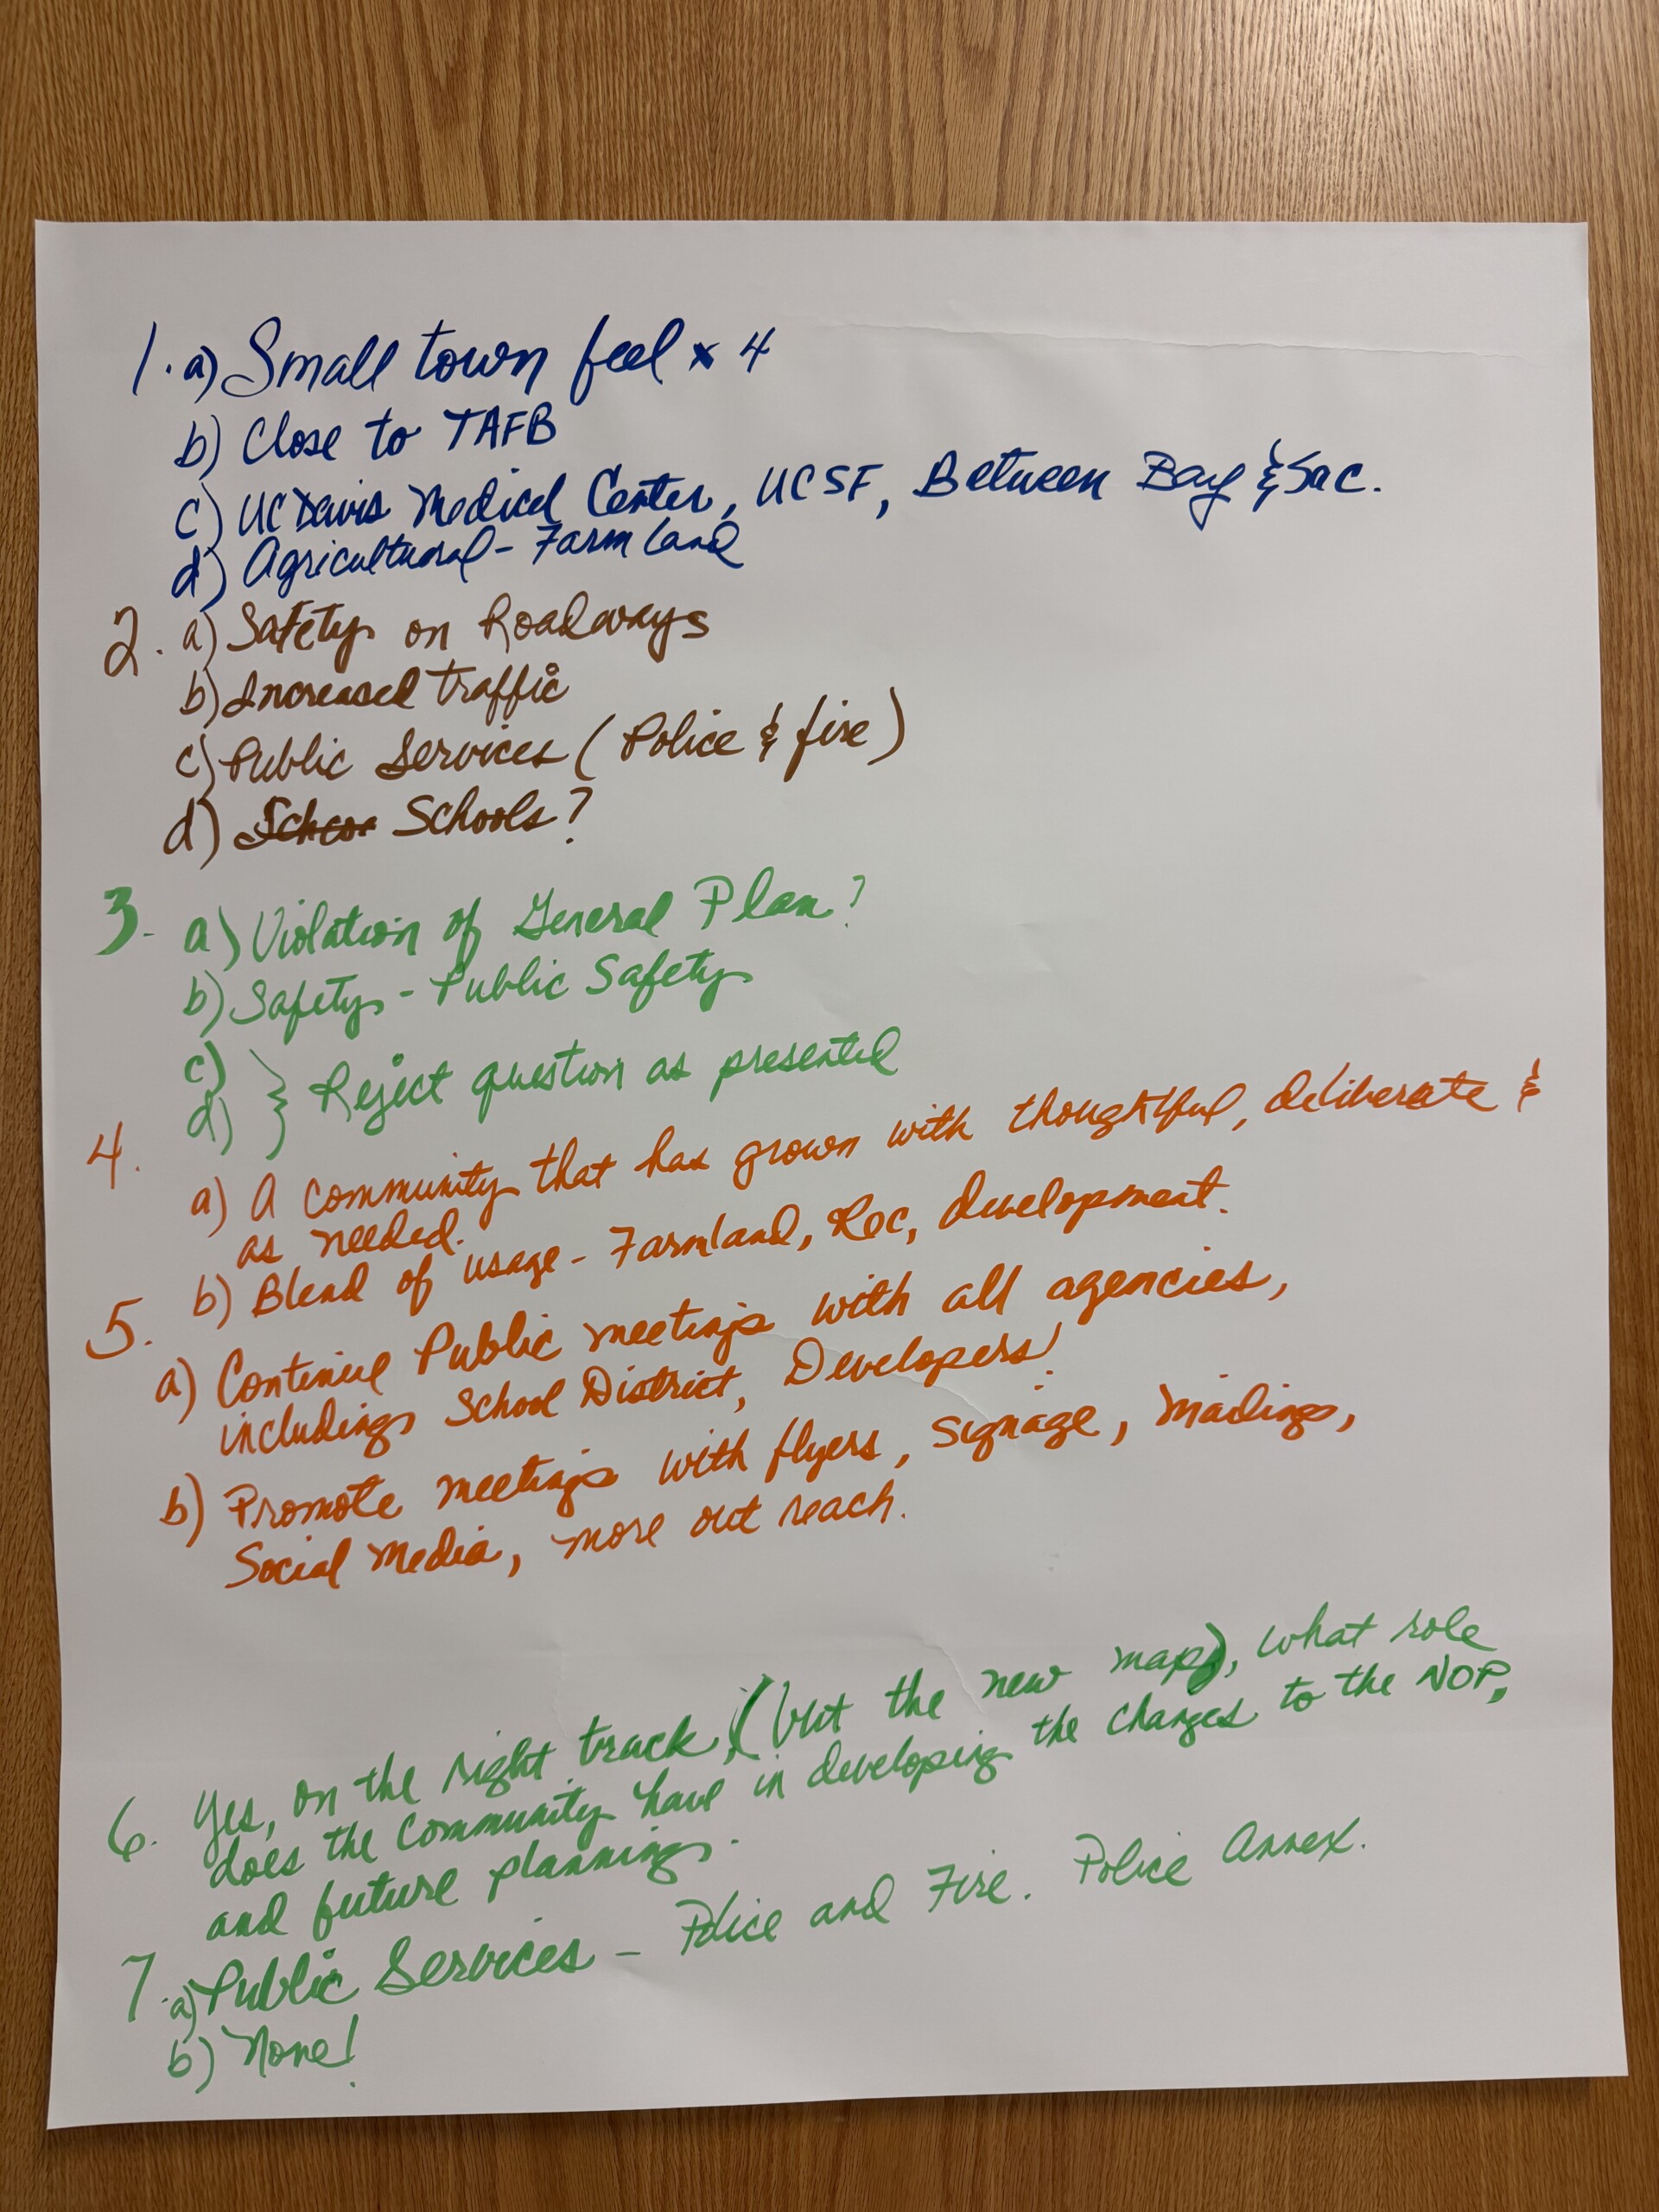 1. a) Small town feel x 4
b) Close to TAFB
c) UC Davis Medical Center, UCSF, Between Bay & Sac.
d) Agricultural - Farm land
2. a) Safety on Roadways
b) Increased traffic
c) Public Services (Police & fire)
d) Schoo Schools?
3. a) Violation of General Plan?
b) Safety - Public Safety
c)
d) } Reject question as presented
4.
a) A community that has grown with thoughtful, deliberate &
as needed.
b) Blend of usage - Farmland, Rec, development.
5.
a) Continue Public meetings with all agencies,
including School District, Developers!
b) Promote meetings with flyers, signage, mailings,
Social Media, more out reach.
6. Yes, on the right track, (but the new map), what role
does the community have in developing the changes to the NOP,
and future planning.
7. a) Public Services - Police and Fire. Police Annex.
b) None!